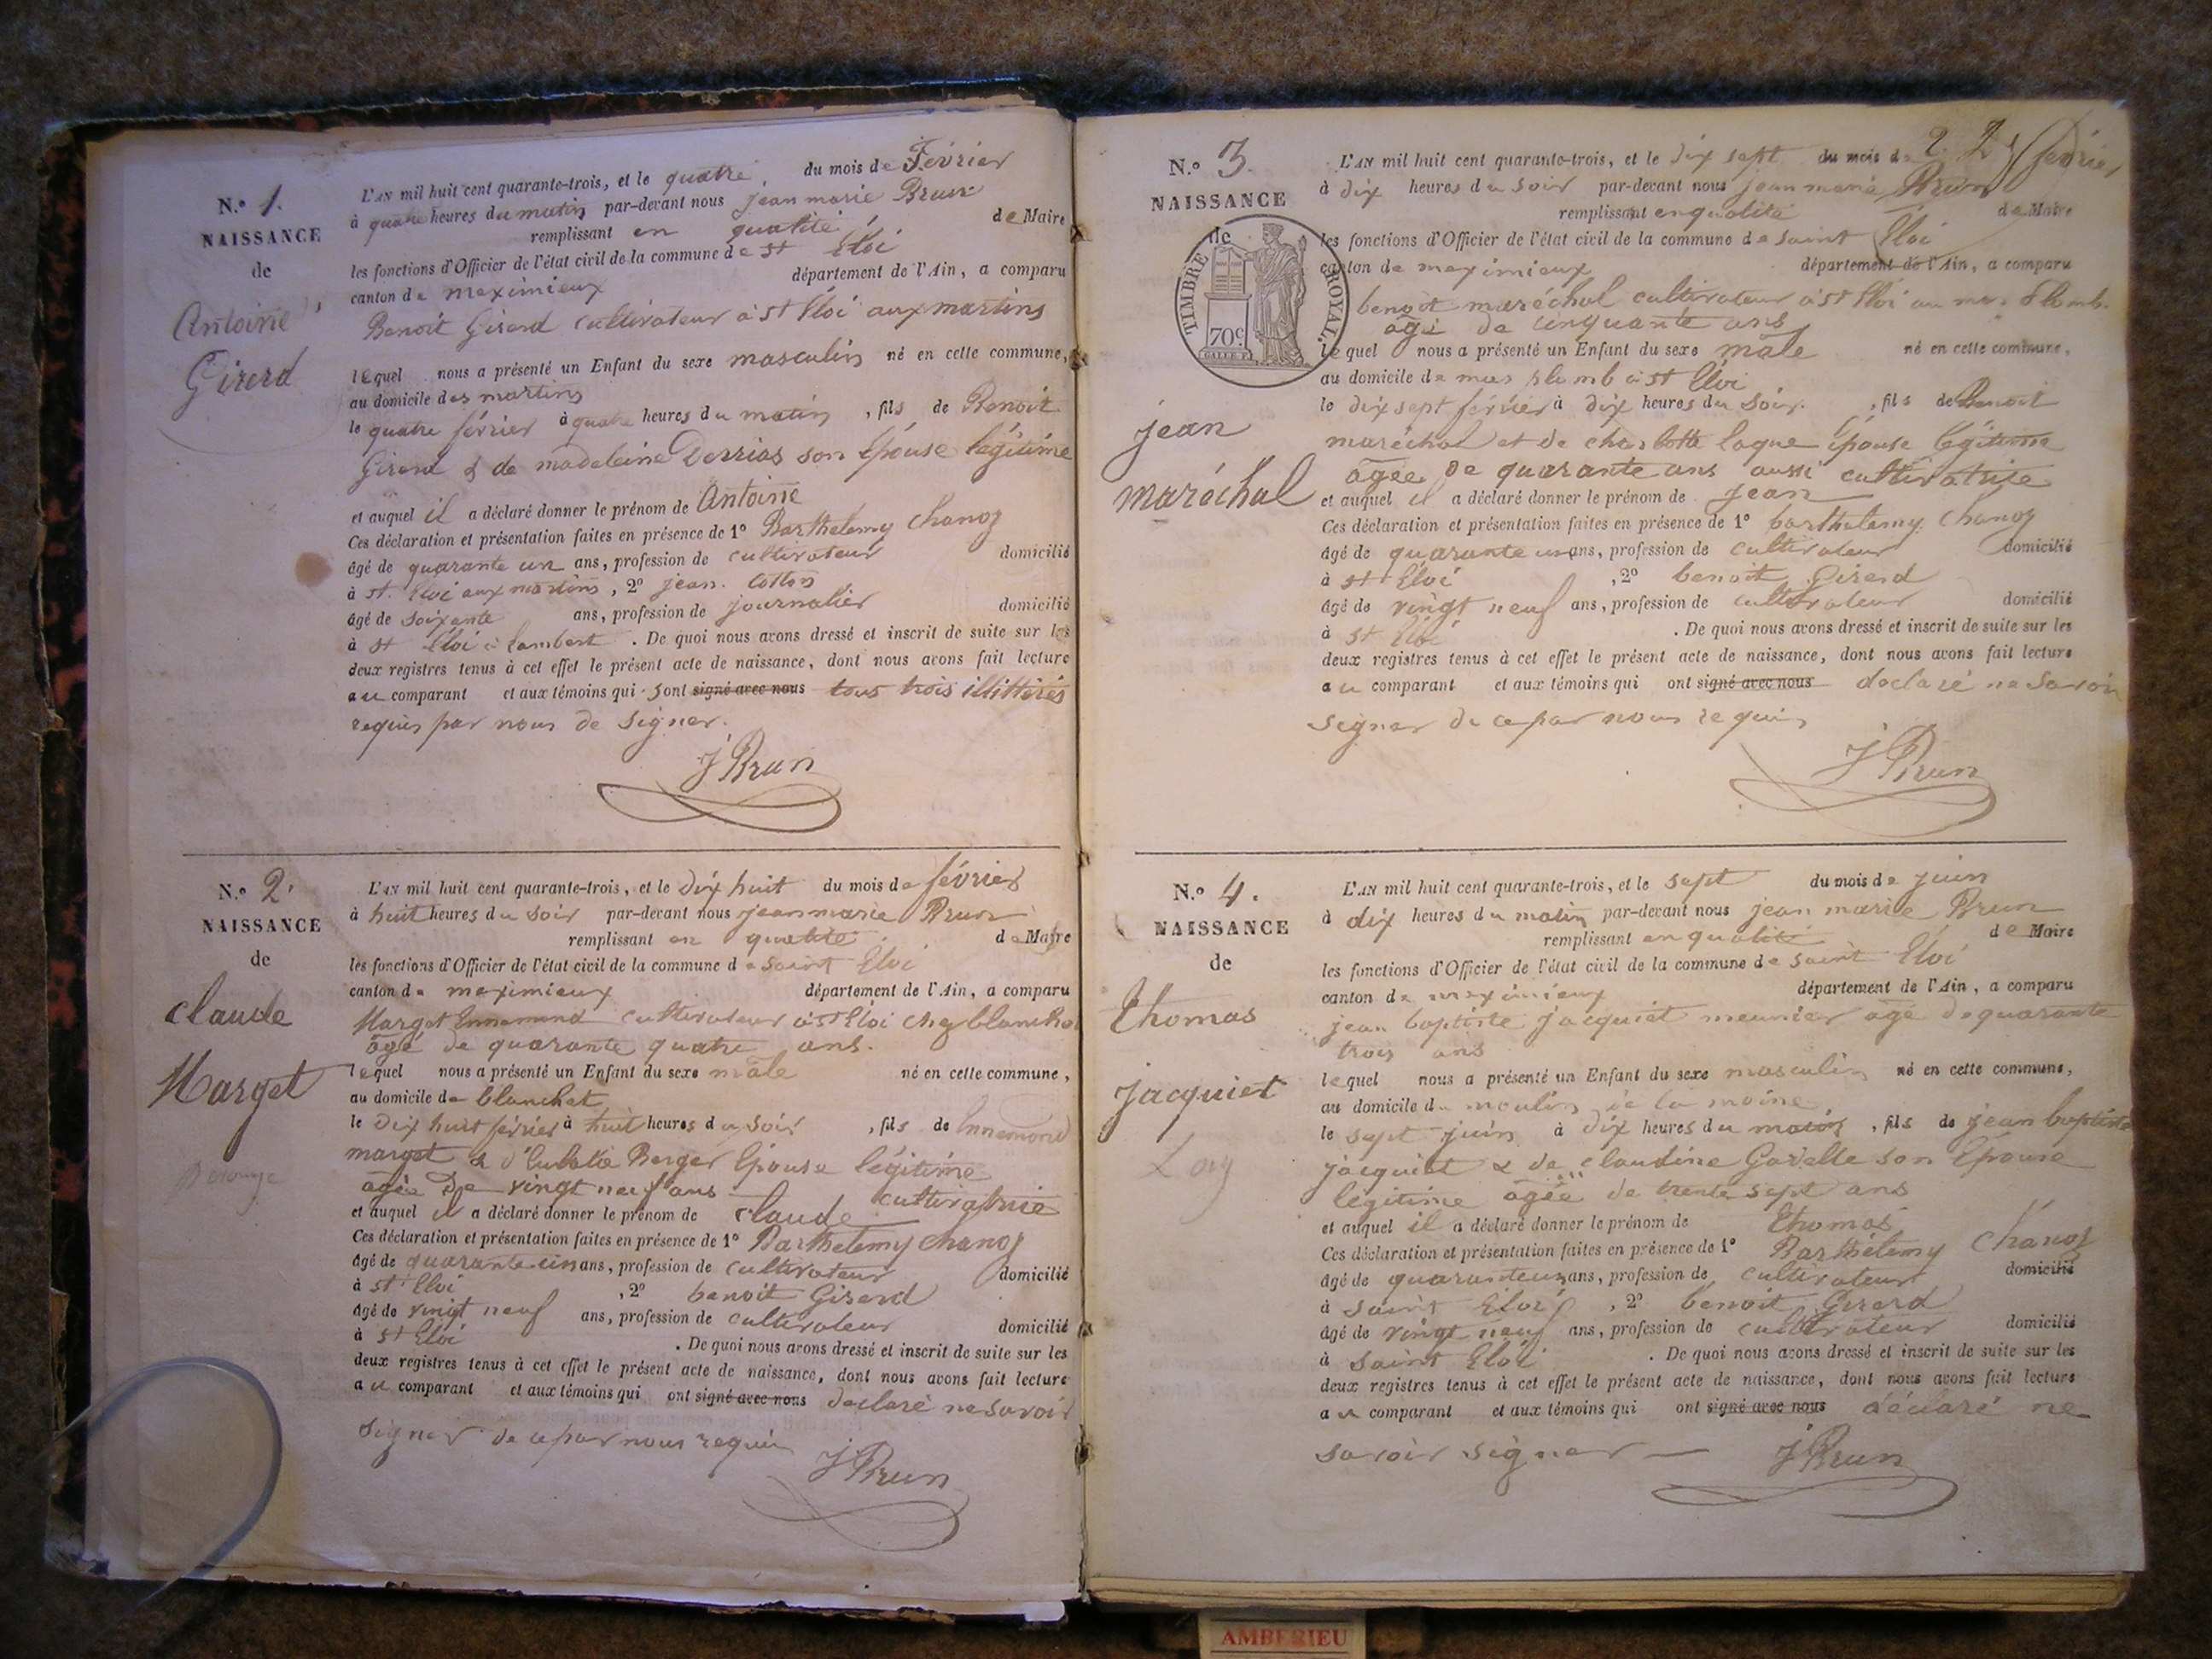 N.º 1.
NAISSANCE
de
Antoine
Girerd
L'AN mil huit cent quarante-trois, et le quatre du mois de Février
à quatre heures du matin par-devant nous jean marie Brun
remplissant en qualité de Maire
les fonctions d'Officier de l'état civil de la commune de St Eloi
canton de meximieux département de l'Ain, a comparu
Benoit Girerd cultivateur à St Eloi aux martins
lequel nous a présenté un Enfant du sexe masculin né en cette commune,
au domicile des martins
le quatre février à quatre heures du matin, fils de Benoit
Girerd & de madeleine Derrias son épouse légitime
et auquel il a déclaré donner le prénom de Antoine
Ces déclaration et présentation faites en présence de 1º Barthelemy Chanoz
âgé de quarante un ans, profession de cultivateur domicilié
à St. Eloi aux martins, 2º jean Cottin
âgé de soixante ans, profession de journalier domicilié
à St Eloi à Lambert. De quoi nous avons dressé et inscrit de suite sur les
deux registres tenus à cet effet le présent acte de naissance, dont nous avons fait lecture
au comparant et aux témoins qui sont signé avec nous tous trois illittérés
requis par nous de signer.
J Brun
N.º 2.
NAISSANCE
de
claude
Marget
L'AN mil huit cent quarante-trois, et le dix huit du mois de février
à huit heures du soir par-devant nous jean marie Brun
remplissant en qualité de Maire
les fonctions d'Officier de l'état civil de la commune de saint Eloi
canton de meximieux département de l'Ain, a comparu
Marget Ennemond cultivateur à St Eloi chez blanchet
âgé de quarante quatre ans.
lequel nous a présenté un Enfant du sexe mâle né en cette commune,
au domicile de blanchet
le dix huit février à huit heures du soir, fils de Ennemond
marget & d'Eulalie Berger épouse légitime
agée de vingt neuf ans cultivatrice
et auquel il a déclaré donner le prénom de claude
Ces déclaration et présentation faites en présence de 1º Barthelemy chanoz
âgé de quarante un ans, profession de cultivateur domicilié
à St Eloi, 2º benoit Girerd
âgé de vingt neuf ans, profession de cultivateur domicilié
à St Eloi. De quoi nous avons dressé et inscrit de suite sur les
deux registres tenus à cet effet le présent acte de naissance, dont nous avons fait lecture
au comparant et aux témoins qui ont signé avec nous declaré ne savoir
signer de ce par nous requis
J Brun
N.º 3.
NAISSANCE
de
TIMBRE ROYAL.
70c
jean
maréchal
L'AN mil huit cent quarante-trois, et le dix sept du mois de février
à dix heures du soir par-devant nous jean marie Brun
remplissant en qualité de Maire
les fonctions d'Officier de l'état civil de la commune de saint Eloi
canton de meximieux département de l'Ain, a comparu
benoit maréchal cultivateur à St Eloi au mas
âgé de cinquante ans
lequel nous a présenté un Enfant du sexe mâle né en cette commune,
au domicile de mas à St Eloi
le dix sept février à dix heures du soir, fils de Benoit
maréchal et de charlotte épouse légitime
agée de quarante ans aussi cultivatrice
et auquel il a déclaré donner le prénom de jean
Ces déclaration et présentation faites en présence de 1º barthelemy Chanoz
âgé de quarante un ans, profession de cultivateur domicilié
à St Eloi, 2º benoit Girerd
âgé de vingt neuf ans, profession de cultivateur domicilié
à St Eloi. De quoi nous avons dressé et inscrit de suite sur les
deux registres tenus à cet effet le présent acte de naissance, dont nous avons fait lecture
au comparant et aux témoins qui ont signé avec nous declaré ne savoir
signer de ce par nous requis
J Brun
N.º 4.
NAISSANCE
de
thomas
jacquiet
L'AN mil huit cent quarante-trois, et le sept du mois de juin
à dix heures du matin par-devant nous jean marie Brun
remplissant en qualité de Maire
les fonctions d'Officier de l'état civil de la commune de saint Eloi
canton de meximieux département de l'Ain, a comparu
jean baptiste jacquiet meunier agé de quarante
trois ans
lequel nous a présenté un Enfant du sexe masculin né en cette commune,
au domicile du moulin de la moine
le sept juin à dix heures du matin, fils de jean baptiste
jacquiet & de claudine Gavelle son Epouse
légitime agée de trente sept ans
et auquel il a déclaré donner le prénom de thomas
Ces déclaration et présentation faites en présence de 1º Barthélemy Chanoz
âgé de quarante un ans, profession de cultivateur domicilié
à saint Eloi, 2º benoit Girerd
âgé de vingt neuf ans, profession de cultivateur domicilié
à saint Eloi. De quoi nous avons dressé et inscrit de suite sur les
deux registres tenus à cet effet le présent acte de naissance, dont nous avons fait lecture
au comparant et aux témoins qui ont signé avec nous déclaré ne
savoir signer
J Brun
AMBERIEU